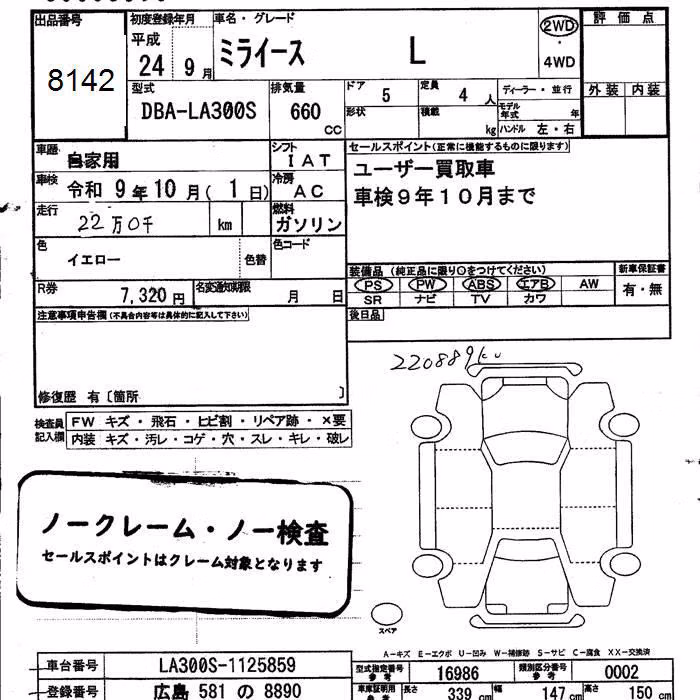 出品番号
8142
初度登録年月
平成
24 9月
車名・グレード
ミライース L
2WD
・
4WD
評価点
外装 内装
型式
DBA-LA300S
排気量
660
CC
ドア
5
定員
4 人
形状
積載
kg
ディーラー・並行
モデル年式 年
ハンドル 左・右
車歴
自家用
シフト
IAT
車検
令和 9年10月(1日)
冷房
AC
走行
22万0千 km
燃料
ガソリン
色
イエロー
色替
色コード
R券
7,320円
名変通知期限
月 日
セールスポイント(正常に機能するものに限ります)
ユーザー買取車
車検9年10月まで
装備品 (純正品に限り○をつけてください)
PS PW ABS エアB AW
SR ナビ TV カワ
新車保証書
有・無
後日品
注意事項申告欄(不具合内容等は具体的に記入して下さい)
修復歴 有〔箇所 〕
検査員記入欄
FW キズ・飛石・ヒビ割・リペア跡・×要
内装 キズ・汚レ・コゲ・穴・スレ・キレ・破レ
220889km
ノークレーム・ノー検査
セールスポイントはクレーム対象となります
スペア
A-キズ E-エクボ U-凹み W-補修跡 S-サビ C-腐食 XX-交換済
車台番号 LA300S-1125859
登録番号 広島 581 の 8890
型式指定番号 参考 16986
類別区分番号 参考 0002
車庫証明用 参考 長さ 339 cm 幅 147 cm 高さ 150 cm